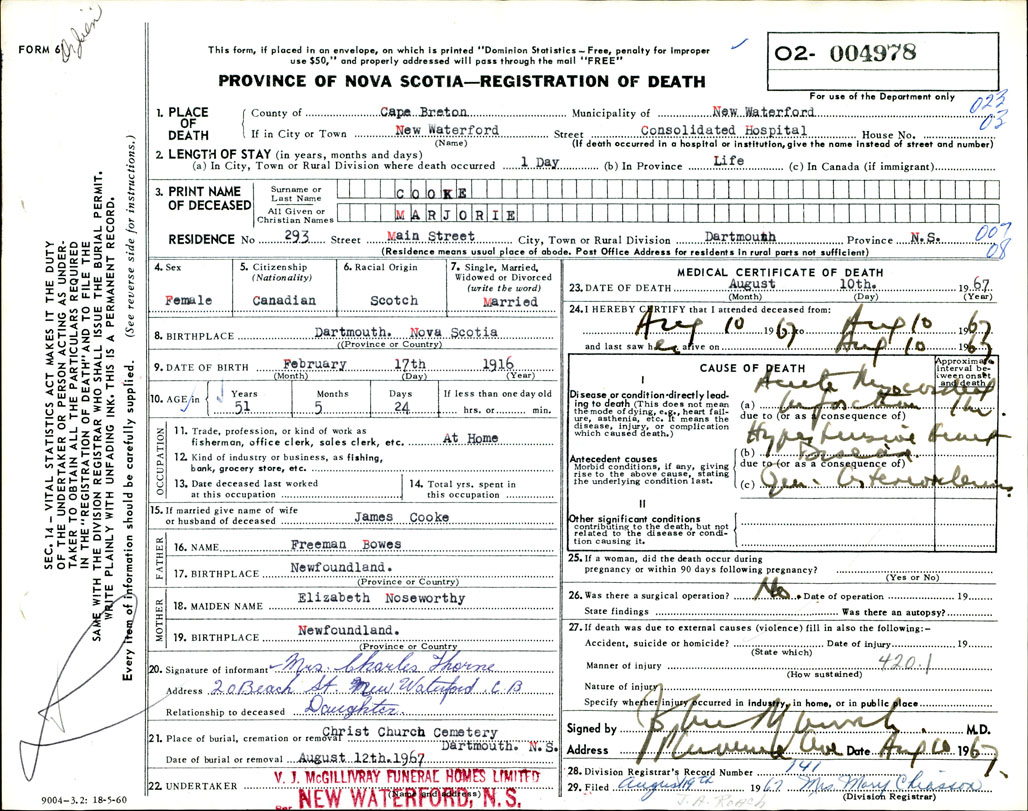 FORM 6
This form, if placed in an envelope, on which is printed "Dominion Statistics – Free, penalty for improper
use $50," and properly addressed will pass through the mail "FREE"
O2- 004978
For use of the Department only
PROVINCE OF NOVA SCOTIA—REGISTRATION OF DEATH
023
03
1. PLACE OF DEATH
County of Cape Breton Municipality of New Waterford
If in City or Town New Waterford Street Consolidated Hospital House No.
(Name) (If death occurred in a hospital or institution, give the name instead of street and number)
2. LENGTH OF STAY (in years, months and days)
(a) In City, Town or Rural Division where death occurred 1 Day (b) In Province Life (c) In Canada (if immigrant)
3. PRINT NAME OF DECEASED
Surname or Last Name COOKE
All Given or Christian Names MARJORIE
007
08
RESIDENCE No 293 Street Main Street City, Town or Rural Division Dartmouth Province N.S.
(Residence means usual place of abode. Post Office Address for residents in rural parts not sufficient)
4. Sex
Female
5. Citizenship
(Nationality)
Canadian
6. Racial Origin
Scotch
7. Single, Married,
Widowed or Divorced
(write the word)
Married
8. BIRTHPLACE Dartmouth. Nova Scotia
(Province or Country)
9. DATE OF BIRTH February 17th 1916
(Month) (Day) (Year)
10. AGE in Years Months Days If less than one day old
51 5 24 hrs. or min.
OCCUPATION
11. Trade, profession, or kind of work as
fisherman, office clerk, sales clerk, etc. At Home
12. Kind of industry or business, as fishing,
bank, grocery store, etc.
13. Date deceased last worked
at this occupation
14. Total yrs. spent in
this occupation
15. If married give name of wife
or husband of deceased James Cooke
FATHER
16. NAME Freeman Bowes
17. BIRTHPLACE Newfoundland.
(Province or Country)
MOTHER
18. MAIDEN NAME Elizabeth Noseworthy
19. BIRTHPLACE Newfoundland.
(Province or Country)
20. Signature of informant Mrs. Charles Thorne
Address 20 Beach St. New Waterford, C B
Relationship to deceased Daughter.
21. Place of burial, cremation or removal Christ Church Cemetery
Dartmouth. N.S.
Date of burial or removal August 12th. 1967
22. UNDERTAKER V. J. McGILLIVRAY FUNERAL HOMES LIMITED
(Name and address)
Per NEW WATERFORD, N. S.
9004–3.2: 18-5-60
MEDICAL CERTIFICATE OF DEATH
23. DATE OF DEATH August 10th. 1967
(Month) (Day) (Year)
24. I HEREBY CERTIFY that I attended deceased from:
Aug 10 1967 to Aug 10 1967
and last saw her alive on Aug 10 1967
CAUSE OF DEATH
Approximate interval between onset and death
I
Disease or condition directly leading to death (This does not mean
the mode of dying, e.g., heart failure, asthenia, etc. It means the
disease, injury, or complication
which caused death.)
(a) Acute Myocardial
Infarction 1 hr.
due to (or as a consequence of)
Antecedent causes
Morbid conditions, if any, giving
rise to the above cause, stating
the underlying condition last.
(b) Hypertensive Heart
Disease
due to (or as a consequence of)
(c) Gen. Arteriosclerosis
II
Other significant conditions
contributing to the death, but not
related to the disease or condition causing it.
25. If a woman, did the death occur during
pregnancy or within 90 days following pregnancy?
(Yes or No)
26. Was there a surgical operation? No Date of operation 19
State findings Was there an autopsy?
27. If death was due to external causes (violence) fill in also the following:–
Accident, suicide or homicide? Date of injury 19
(State which)
Manner of injury 420.1
(How sustained)
Nature of injury
Specify whether injury occurred in industry, in home, or in public place
Signed by M.D.
Address Date Aug 10 1967
28. Division Registrar's Record Number 141
29. Filed August 19th 1967 Mrs. Mary Chiasson
(Division Registrar)
J. A. Roach
SEC. 14 – VITAL STATISTICS ACT MAKES IT THE DUTY
OF THE UNDERTAKER OR PERSON ACTING AS UNDER-
TAKER TO OBTAIN ALL THE PARTICULARS REQUIRED
IN THE "REGISTRATION OF DEATH" AND TO FILE THE
SAME WITH THE DIVISION REGISTRAR WHO SHALL ISSUE THE BURIAL PERMIT.
WRITE PLAINLY WITH UNFADING INK. THIS IS A PERMANENT RECORD.
Every item of information should be carefully supplied. (See reverse side for instructions.)